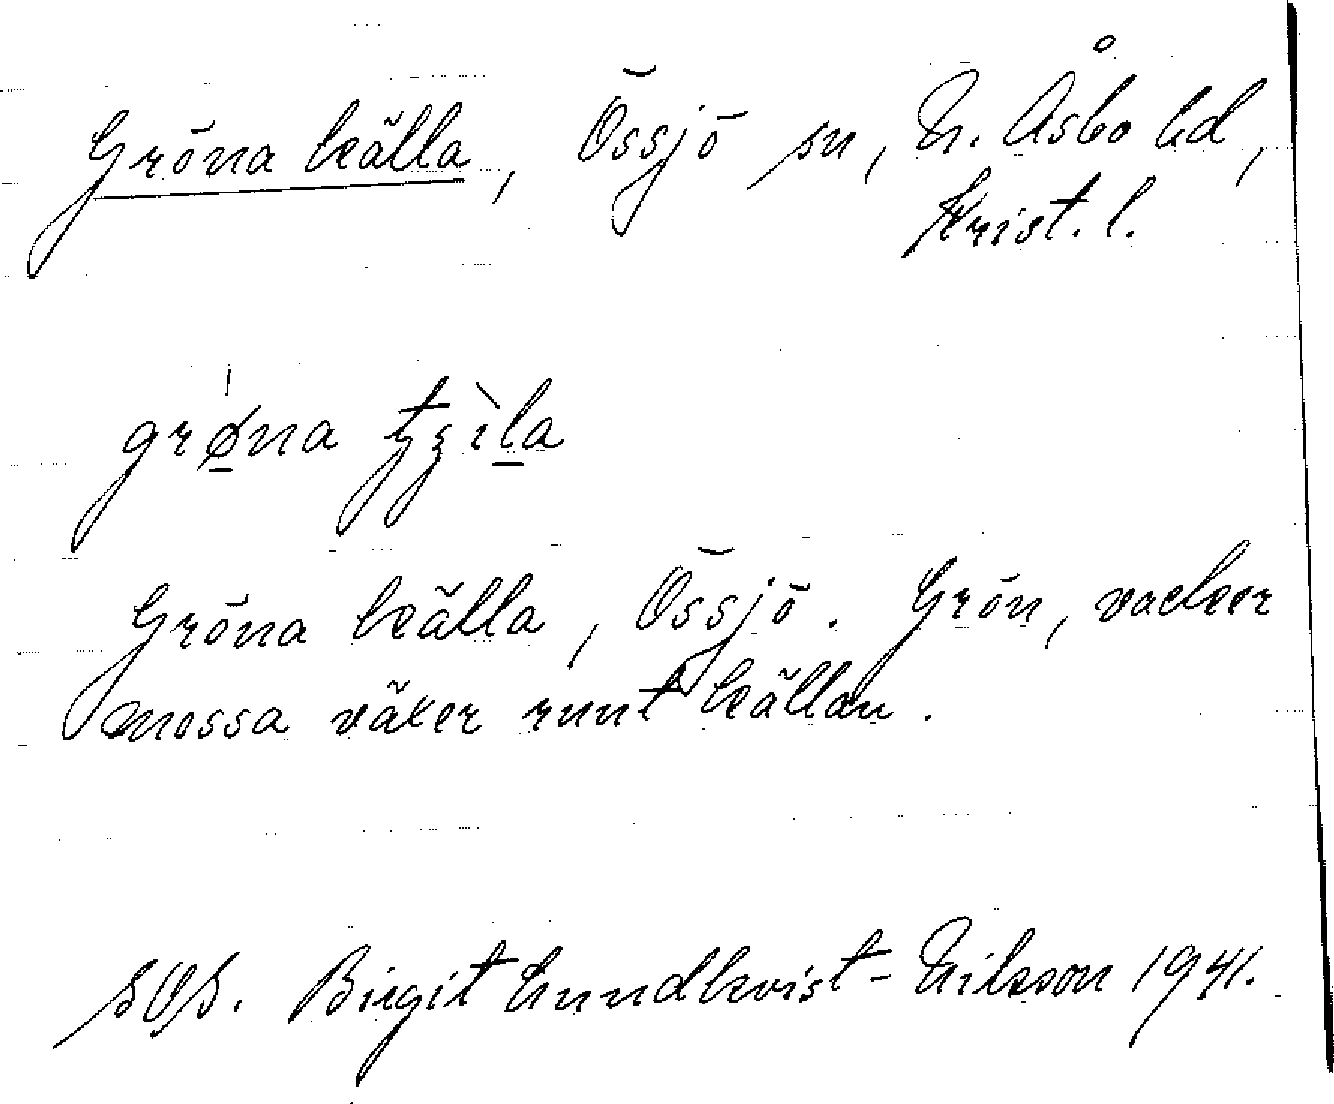 Gröna källa, Össjö sn, N. Åsbo hd,
Krist. l.
grø̲na tʒìl̲a
Gröna källa, Össjö. Grön, vacker
mossa växer runt källan.
SOS. Birgit Lundkvist-Nilsson 1941.